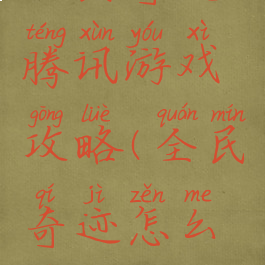 téng xùn yóu xì
腾讯游戏
gōng lüè quán mín
攻略(全民
qí jì zěn me
奇迹怎么